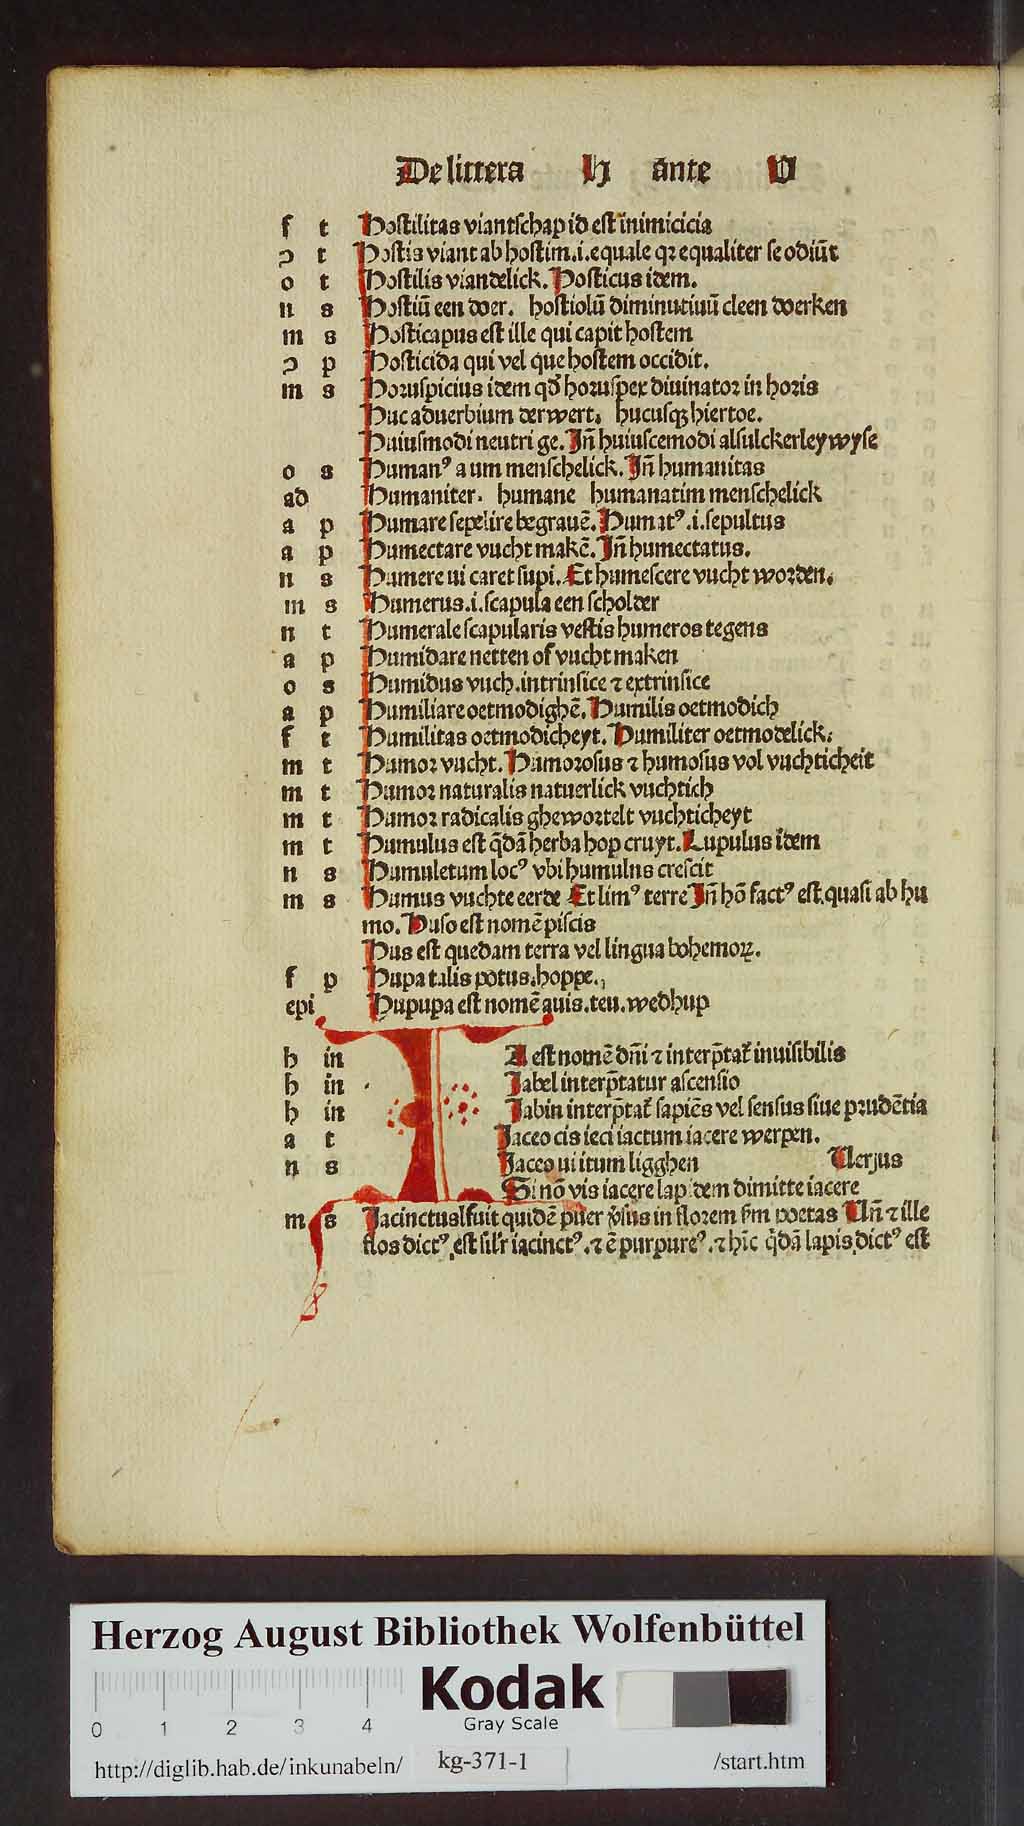 De littera H ante V
f t Hostilitas viantschap id est inimicicia
ɔ t Hostis viant ab hostim.i.equale qꝛ equaliter se odiūt
o t Hostilis viandelick. Hosticus idem.
n s Hostiū een doer. hostiolū diminutiuū cleen doerken
m s Hosticapus est ille qui capit hostem
ɔ p Hosticida qui vel que hostem occidit.
m s Horuspicius idem qđ horuspex diuinator in horis
Huc aduerbium derwert. hucusqꝫ hiertoe.
Huiusmodi neutri ge. Jñ huiuscemodi alsulckerleywyse
o s Humanꝰ a um menschelick. Jñ humanitas
ad Humaniter. humane humanatim menschelick
a p Humare sepelire begrauē. Humatꝰ.i.sepultus
a p Humectare vucht makē. Jñ humectatus.
n s Humere ui caret supi. Et humescere vucht worden.
m s Humerus.i.scapula een scholder
n t Humerale scapularis vestis humeros tegens
a p Humidare netten of vucht maken
o s Humidus vuch.intrinsice ⁊ extrinsice
a p Humiliare oetmodighē. Humilis oetmodich
f t Humilitas oetmodicheyt. Humiliter oetmodelick.
m t Humor vucht. Humorosus ⁊ humosus vol vuchticheit
m t Humor naturalis natuerlick vuchtich
m t Humor radicalis ghewortelt vuchticheyt
m t Humulus est q̄dā herba hop cruyt. Lupulus idem
n s Humuletum locꝰ vbi humulus crescit
m s Humus vuchte eerde Et limꝰ terre Jñ hō factꝰ est.quasi ab hu
mo. Huso est nomē piscis
Hus est quedam terra vel lingua bohemoꝝ.
f p Hupa talis potus.hoppe.
epi Hupupa est nomē auis.teu.wedhup
h in IA est nomē dñi ⁊ interp̄tať inuisibilis
h in Jabel interp̄tatur ascensio
h in Jabin interp̄tať sapiēs vel sensus siue prudētia
a t Jaceo cis ieci iactum iacere werpen.
n s Jaceo ui itum ligghen Versus
Si nō vis iacere lapidem dimitte iacere
m s Jacinctus fuit quidē puer v̓sus in florem s̄m poetas Vñ ⁊ ille
flos dictꝰ est sil'r iacinctꝰ.⁊ ē purpureꝰ.⁊ hīc q̄dā lapis dictꝰ est
Herzog August Bibliothek Wolfenbüttel
Kodak
Gray Scale
0 1 2 3 4
http://diglib.hab.de/inkunabeln/ kg-371-1 /start.htm